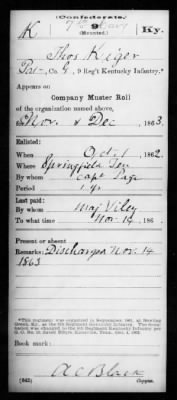 (Confederate.)
K 9 Ky.
(Mounted.)
Thos. Keiger
Pat-, Co. G, 9 Reg't Kentucky Infantry.*
Appears on
Company Muster Roll
of the organization named above,
for Nov & Dec, 1863.
Enlisted:
When Oct. 1, 1862.
Where Springfield Ten
By whom Capt Page
Period 1 yr
Last paid:
By whom Maj Viley
To what time Nov. 14, 186 .
Present or absent
Remarks: Discharged Nov. 14
1863
Book mark:
A C Black
(642) Copyist.